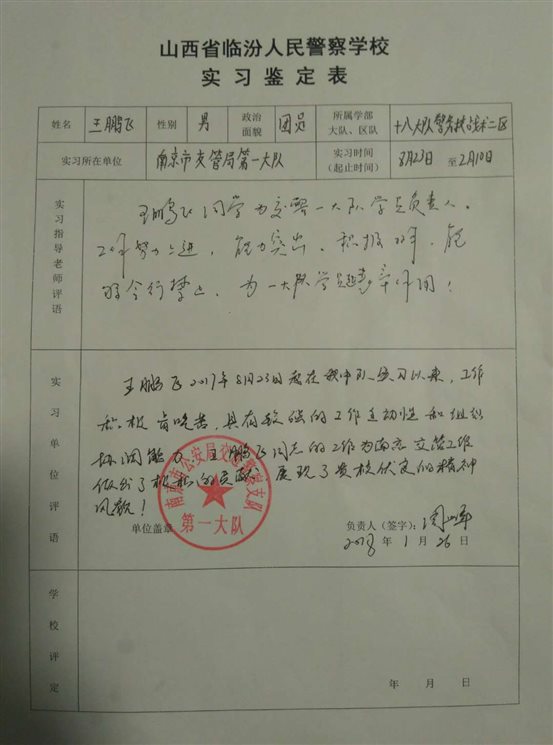 山西省临汾人民警察学校
实习鉴定表
姓名 王鹏飞 性别 男 政治面貌 团员 所属学部大队、区队 十八大队警务技战术二区
实习所在单位 南京市交管局第一大队 实习时间(起止时间) 8月23日 至2月10日
实习指导老师评语
王鹏飞同学为交警一大队学员负责人。
工作努力上进,能力突出、积极,能
够令行禁止、为一大队学员起带作用!
实习单位评语
王鹏飞2017年8月23日来在我中队实习以来,工作
积极肯吃苦,具有较强的工作主动性和组织
协调能力,王鹏飞同志的工作为南京交管工作
做出了积极的贡献,展现了贵校优良的精神
风貌!
南京市公安局交通支队
第一大队
单位盖章 负责人(签字):
2018年1月26日
学校评定
年 月 日